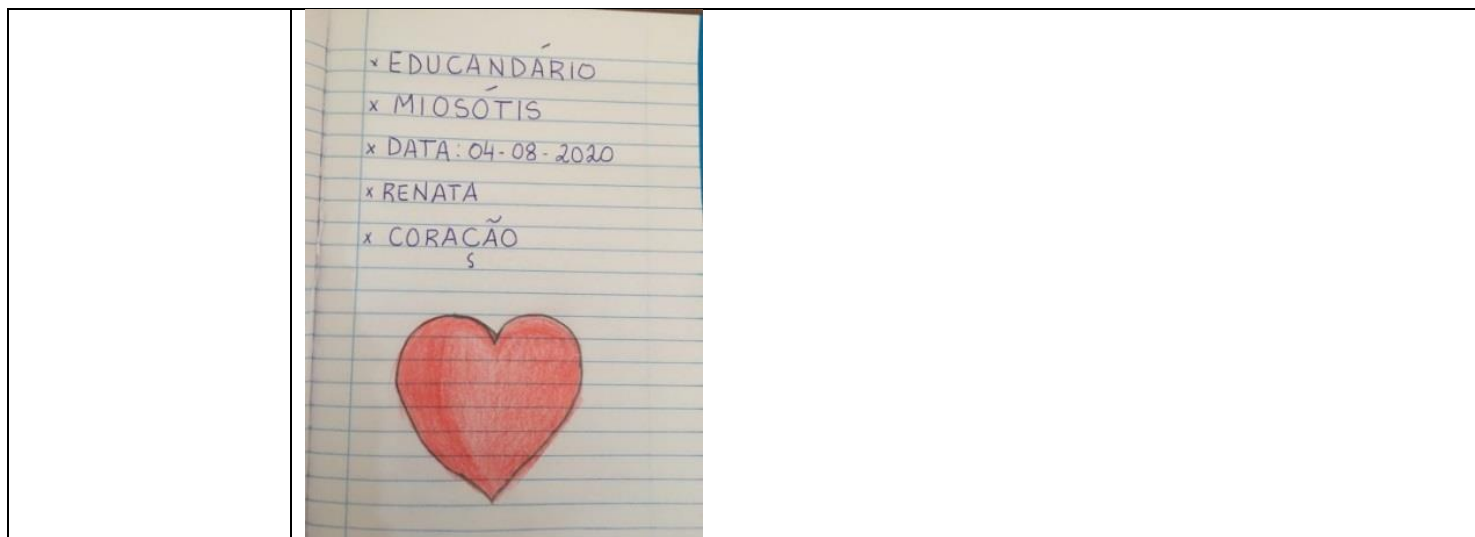 x EDUCANDÁRIO
x MIOSÓTIS
x DATA: 04-08-2020
x RENATA
x CORAÇÃO